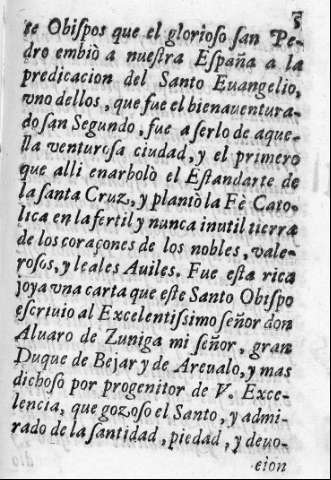 5
te Obispos que el glorioso san Pe-
dro embiò a nuestra España a la
predicacion del Santo Euangelio,
vno dellos, que fue el bienauentura-
do san Segundo, fue a serlo de aque-
lla venturosa ciudad, y el primero
que alli enarbolò el Estandarte de
la santa Cruz, y plantò la Fè Cato-
lica en la fertil y nunca inutil tierra
de los coraçones de los nobles, vale-
rosos, y leales Auiles. Fue esta rica
joya vna carta que este Santo Obispo
escriuio al Excelentissimo señor don
Aluaro de Zuniga mi señor, gran
Duque de Bejar y de Areualo, y mas
dichoso por progenitor de V. Exce-
lencia, que gozoso el Santo, y admi-
rado de la santidad, piedad, y deuo-
cion